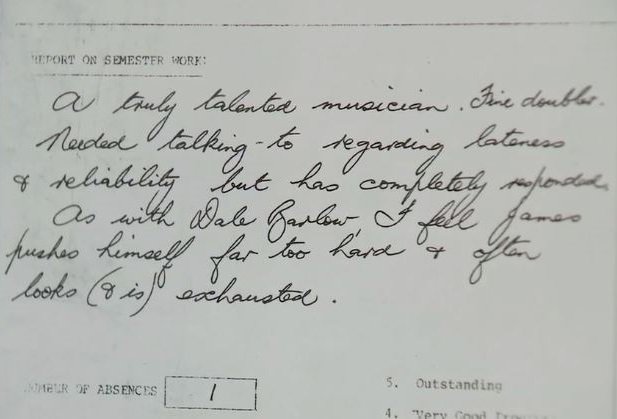 REPORT ON SEMESTER WORK:
A truly talented musician. Fine doubler.
Needed talking-to regarding lateness
& reliability but has completely responded.
As with Dale Barlow, I feel James
pushes himself far too hard & often
looks (& is) exhausted.
NUMBER OF ABSENCES 1
5. Outstanding
4. Very Good